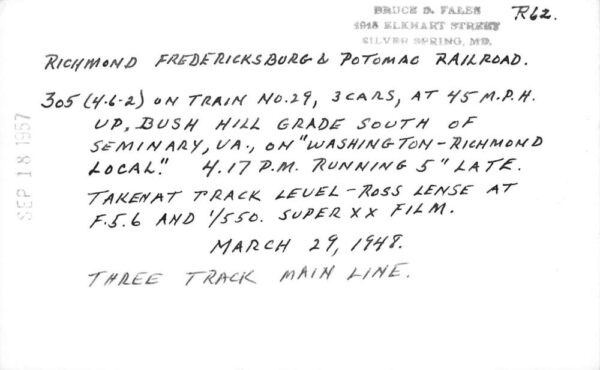 BRUCE D. FALES
1918 ELKHART STREET
SILVER SPRING, MD.
R62.
RICHMOND FREDERICKSBURG & POTOMAC RAILROAD.
305 (4-6-2) ON TRAIN NO.29, 3 CARS, AT 45 M.P.H.
UP, BUSH HILL GRADE SOUTH OF
SEMINARY, VA., ON "WASHINGTON-RICHMOND
LOCAL." 4.17 P.M. RUNNING 5" LATE.
TAKEN AT TRACK LEVEL - ROSS LENSE AT
F.5.6 AND 1/550. SUPER XX FILM.
MARCH 29, 1948.
THREE TRACK MAIN LINE.
SEP 18 1957